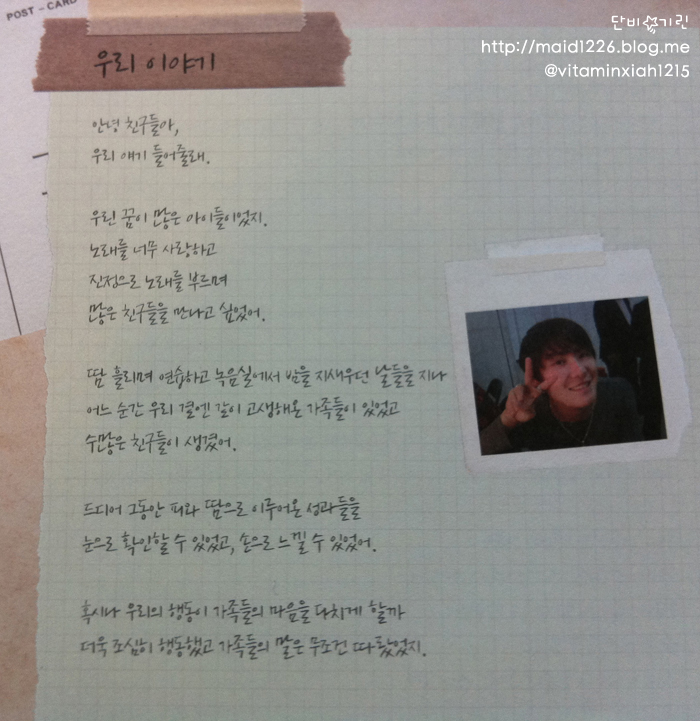 POST-CARD
단비섬기린
http://maid1226.blog.me
@vitaminxiah1215
우리 이야기
안녕 친구들아,
우리 얘기 들어줄래.
우린 꿈이 많은 아이들이었지.
노래를 너무 사랑하고
진정으로 노래를 부르며
많은 친구들을 만나고 싶었어.
땀 흘리며 연습하고 녹음실에서 밤을 지새우던 날들을 지나
어느 순간 우리 곁엔 같이 고생해온 가족들이 있었고
수많은 친구들이 생겼어.
드디어 그동안 피와 땀으로 이루어온 성과들을
눈으로 확인할 수 있었고, 손으로 느낄 수 있었어.
혹시나 우리의 행동이 가족들의 마음을 다치게 할까
더욱 조심히 행동했고 가족들의 말은 무조건 따랐었지.